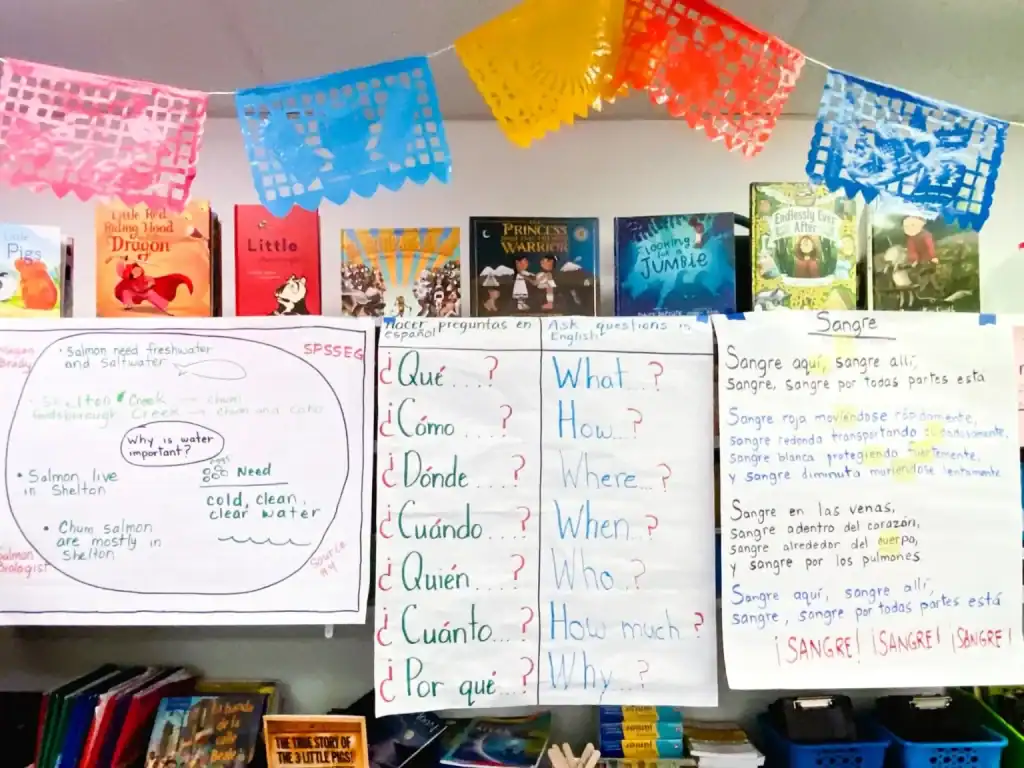 Little
Pigs
Little Red
Riding Hood
and the
Dragon
Little
PRINCESS
WARRIOR
LOOKING
for a
JUMBIE
Endlessly Ever
After
Brady
• Salmon need freshwater
and Saltwater
SPSSEG
Creek → chum
Creek → chum and coho
Why is water
important?
• Salmon live
in Shelton
eggs
Need
cold, clean,
clear water
• Chum salmon
are mostly in
Shelton
Salmon
Biologist
Source
#4
Hacer preguntas en
español
¿Qué....?
¿Cómo....?
¿Dónde....?
¿Cuándo....?
¿Quién....?
¿Cuánto...?
¿Por qué...?
Ask questions in
English
What...?
How...?
Where...?
When...?
Who...?
How much ?
Why...?
Sangre
Sangre aquí, sangre allí,
Sangre, sangre por todas partes está
Sangre roja moviéndose rápidamente,
sangre redonda transportando cuidadosamente,
sangre blanca protegiendo fuertemente,
y sangre diminuta muriéndose lentamente
Sangre en las venas,
sangre adentro del corazón,
sangre alrededor del cuerpo,
y sangre por los pulmones.
Sangre aquí, sangre allí,
sangre, sangre por todas partes está
¡SANGRE! ¡SANGRE! ¡SANGRE!
La banda
de la
calle
THE TRUE STORY OF
THE 3 LITTLE PIGS!